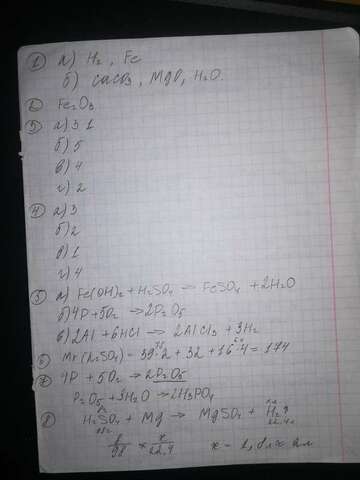 ① а) H₂, Fe
б) CaCO₃, MgO, H₂O.
② Fe₂O₃
③ а) 3 1
б) 5
в) 4
г) 2
④ а) 3
б) 2
в) 1
г) 4
⑤ а) Fe(OH)₂ + H₂SO₄ → FeSO₄ + 2H₂O
б) 4P + 5O₂ → 2P₂O₅
в) 2Al + 6HCl → 2AlCl₃ + 3H₂
⑥ Mr(K₂SO₄) = 39·2 + 32 + 16·4 = 174
⑦ 4P + 5O₂ → 2P₂O₅
P₂O₅ + 3H₂O → 2H₃PO₄
⑧ H₂SO₄ + Mg → MgSO₄ + H₂↑
22.4
8/98 * x/22.4 x = 1,8